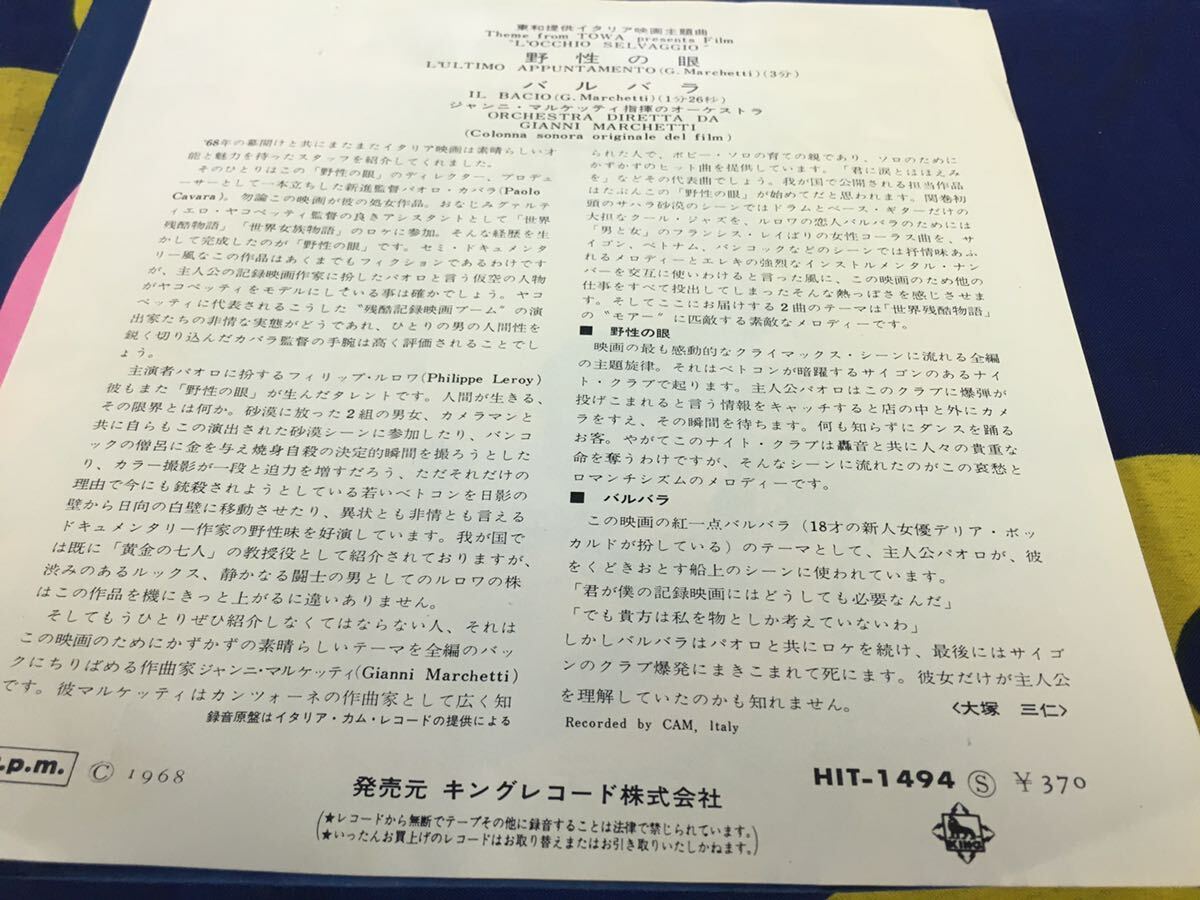 東和提供イタリア映画主題曲
Theme from TOWA presents Film
"L'OCCHIO SELVAGGIO"
野性の眼
L'ULTIMO APPUNTAMENTO (G. Marchetti) (3分)
バルバラ
IL BACIO (G. Marchetti) (1分26秒)
ジャンニ・マルケッティ指揮のオーケストラ
ORCHESTRA DIRETTA DA
GIANNI MARCHETTI
(Colonna sonora originale del film)
'68年の幕開けと共にまたまたイタリア映画は素晴らしい才
能と魅力を持ったスタッフを紹介してくれました。
そのひとりはこの「野性の眼」のディレクター、プロデュ
ーサーとして一本立ちした新進監督パオロ・カバラ(Paolo
Cavara)。勿論この映画が彼の処女作品。おなじみグァルティ
エロ・ヤコペッティ監督の良きアシスタントとして「世界
残酷物語」「世界女族物語」のロケに参加。そんな経歴を生
かして完成したのが「野性の眼」です。セミ・ドキュメンタ
リー風なこの作品はあくまでもフィクションであるわけです
が、主人公の記録映画作家に扮したパオロと言う仮空の人物
がヤコペッティをモデルにしている事は確かでしょう。ヤコ
ペッティに代表されるこうした"残酷記録映画ブーム"の演
出家たちの非情な実態がどうであれ、ひとりの男の人間性を
鋭く切り込んだカバラ監督の手腕は高く評価されることでし
ょう。
主演者パオロに扮するフィリップ・ルロワ(Philippe Leroy)
彼もまた「野性の眼」が生んだタレントです。人間が生きる、
その限界とは何か。砂漠に放った2組の男女、カメラマンと
共に自らもこの演出された砂漠シーンに参加したり、バンコ
ックの僧呂に金を与え焼身自殺の決定的瞬間を撮ろうとした
り、カラー撮影が一段と迫力を増すだろう、ただそれだけの
理由で今にも銃殺されようとしている若いベトコンを日影の
壁から日向の白壁に移動させたり、異状とも非情とも言える
ドキュメンタリー作家の野性味を好演しています。我が国で
は既に「黄金の七人」の教授役として紹介されておりますが、
渋みのあるルックス、静かなる闘士の男としてのルロワの株
はこの作品を機にきっと上がるに違いありません。
そしてもうひとりぜひ紹介しなくてはならない人、それは
この映画のためにかずかずの素晴らしいテーマを全編のバッ
クにちりばめる作曲家ジャンニ・マルケッティ(Gianni Marchetti)
です。彼マルケッティはカンツォーネの作曲家として広く知
録音原盤はイタリア・カム・レコードの提供による
られた人で、ボビー・ソロの育ての親であり、ソロのために
かずかずのヒット曲を提供しています。「君に涙とほほえみ
を」などその代表曲でしょう。我が国で公開される担当作品
はたぶんこの「野性の眼」が始めてだと思われます。開巻初
頭のサハラ砂漠のシーンではドラムとベース・ギターだけの
大担なクール・ジャズを、ルロワの恋人バルバラのためには
「男と女」のフランシス・レイばりの女性コーラス曲を、サ
イゴン、ベトナム、バンコックなどのシーンでは抒情味あふ
れるメロディーとエレキの強烈なインストルメンタル・ナン
バーを交互に使いわけると言った風に、この映画のため他の
仕事をすべて投出してしまったそんな熱っぽさを感じさせま
す。そしてここにお届けする2曲のテーマは「世界残酷物語」
の"モアー"に匹敵する素敵なメロディーです。
■ 野性の眼
映画の最も感動的なクライマックス・シーンに流れる全編
の主題旋律。それはベトコンが暗躍するサイゴンのあるナイ
ト・クラブで起ります。主人公パオロはこのクラブに爆弾が
投げこまれると言う情報をキャッチすると店の中と外にカメ
ラをすえ、その瞬間を待ちます。何も知らずにダンスを踊る
お客。やがてこのナイト・クラブは轟音と共に人々の貴重な
命を奪うわけですが、そんなシーンに流れたのがこの哀愁と
ロマンチシズムのメロディーです。
■ バルバラ
この映画の紅一点バルバラ(18才の新人女優デリア・ボッ
カルドが扮している)のテーマとして、主人公パオロが、彼
をくどきおとす船上のシーンに使われています。
「君が僕の記録映画にはどうしても必要なんだ」
「でも貴方は私を物としか考えていないわ」
しかしバルバラはパオロと共にロケを続け、最後にはサイゴ
ンのクラブ爆発にまきこまれて死にます。彼女だけが主人公
を理解していたのかも知れません。 〈大塚 三仁〉
Recorded by CAM, Italy
.p.m. Ⓒ 1968
発売元 キングレコード株式会社
HIT-1494 Ⓢ ¥370
(★レコードから無断でテープその他に録音することは法律で禁じられています。
★いったんお買上げのレコードはお取り替えまたはお引き取りいたしかねます。)
KING